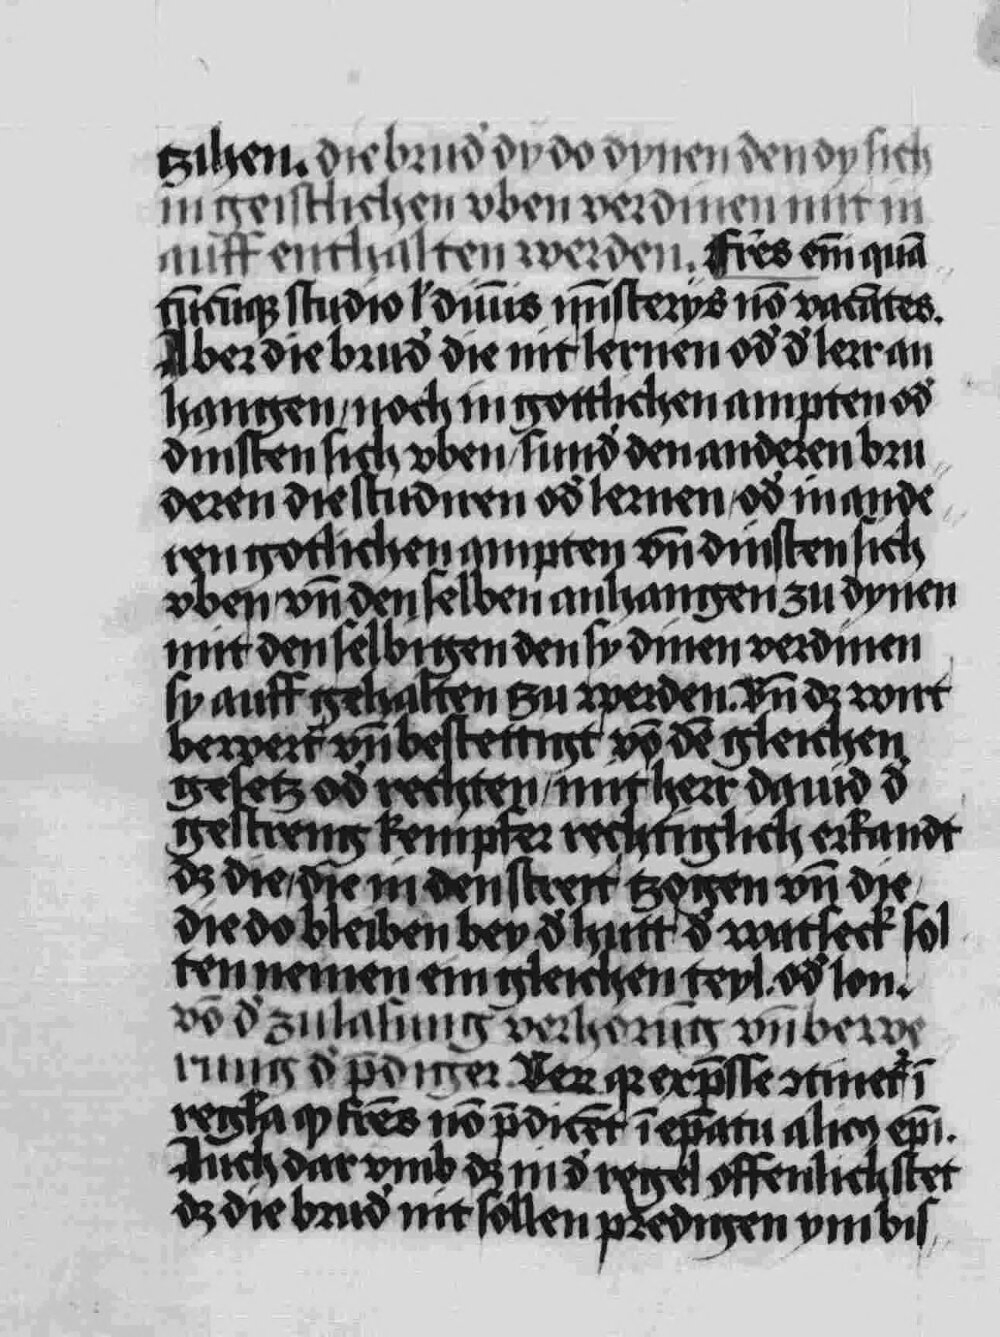 tzihen. die brud' dy do dynen den dy sich
in geistlichen vben verdinen mit in
auff enthalten werden. Fr̄es em̄ quā
tūcūq; studio l' diuīs mīsterijs nō vacātes.
Aber die brud' die nit lernen od' d' lerr an
hangen / noch in gottlichen ampten od'
dinsten sich vben / sund' den anderen bru
deren die studiren od' lernen / od' in ande
ren gotlichen ampten vn̄ dinsten sich
vben / vn̄ den selben anhangen zu dynen
mit den selbigen den sy dinen verdinen
sy auff gehalten tzu werden. Vn̄ dz wirt
bewert vn̄ bestettigt vō dē gleichen
gesetz od' rechten / mit herr dauid d'
gestreng kempfer rechtiglich erkandt
dz die / die in den streit tzogen vn̄ die /
die do bleiben bey d' hutt d' watseck sol
ten nemen ein gleichen teyl. od' lon.
vō d' zulasung verhorūg vn̄ bewe
rung d' p̄diger. Ver qr exp̄sse ɔtinet' ī
reg'la q̳ fr̄es nō p̄dicēt ī ep̄atu alicꝫ ep̄i.
Auch dar vmb dz in d' regel offenlich stet
dz die brud' nit sollen predigen ym bis